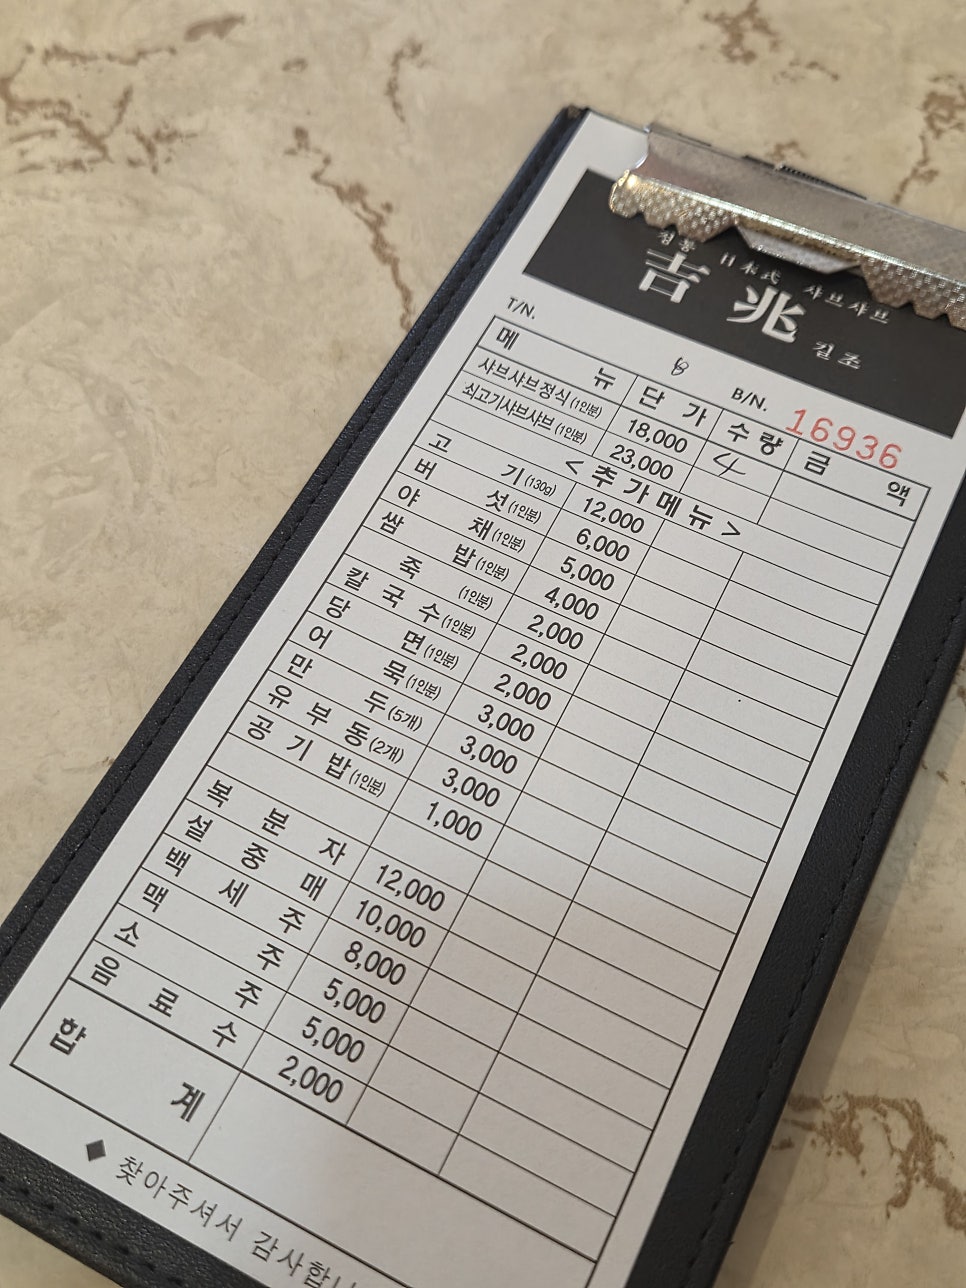 정통 日本式 샤브샤브
吉兆 길조
T/N. 6 B/N. 16936
메뉴 단가 수량 금액
샤브샤브정식(1인분) 18,000 4
쇠고기샤브샤브(1인분) 23,000
<추가메뉴>
고기(130g) 12,000
버섯(1인분) 6,000
야채(1인분) 5,000
쌈밥(1인분) 4,000
죽(1인분) 2,000
칼국수(1인분) 2,000
당면(1인분) 2,000
어묵(1인분) 3,000
만두(5개) 3,000
유부동(2개) 3,000
공기밥(1인분) 1,000
복분자 12,000
설중매 10,000
백세주 8,000
맥주 5,000
소주 5,000
음료수 2,000
합계
◆ 찾아주셔서 감사합니